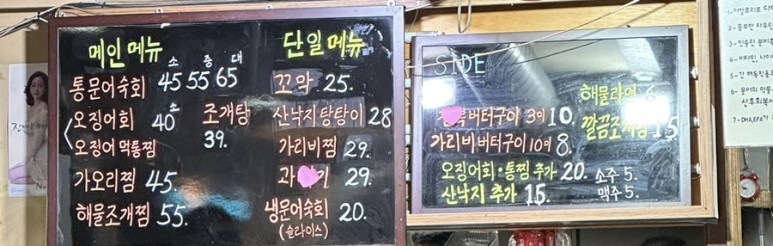 메인메뉴
소 중 대
통문어숙회 45 55 65
오징어회 소 40
오징어먹통찜
조개탕 39.
가오리찜 45.
해물조개찜 55.
단일메뉴
꼬막 25.
산낙지탕탕이 28
가리비찜 29.
과 기 29.
냉문어숙회 20.
(슬라이스)
SIDE
버터구이 3미 10.
가리비버터구이 10미 8.
오징어회·통찜 추가 20.
산낙지 추가 15.
해물라면 6
깔끔조개탕 15
소주 5.
맥주 5.